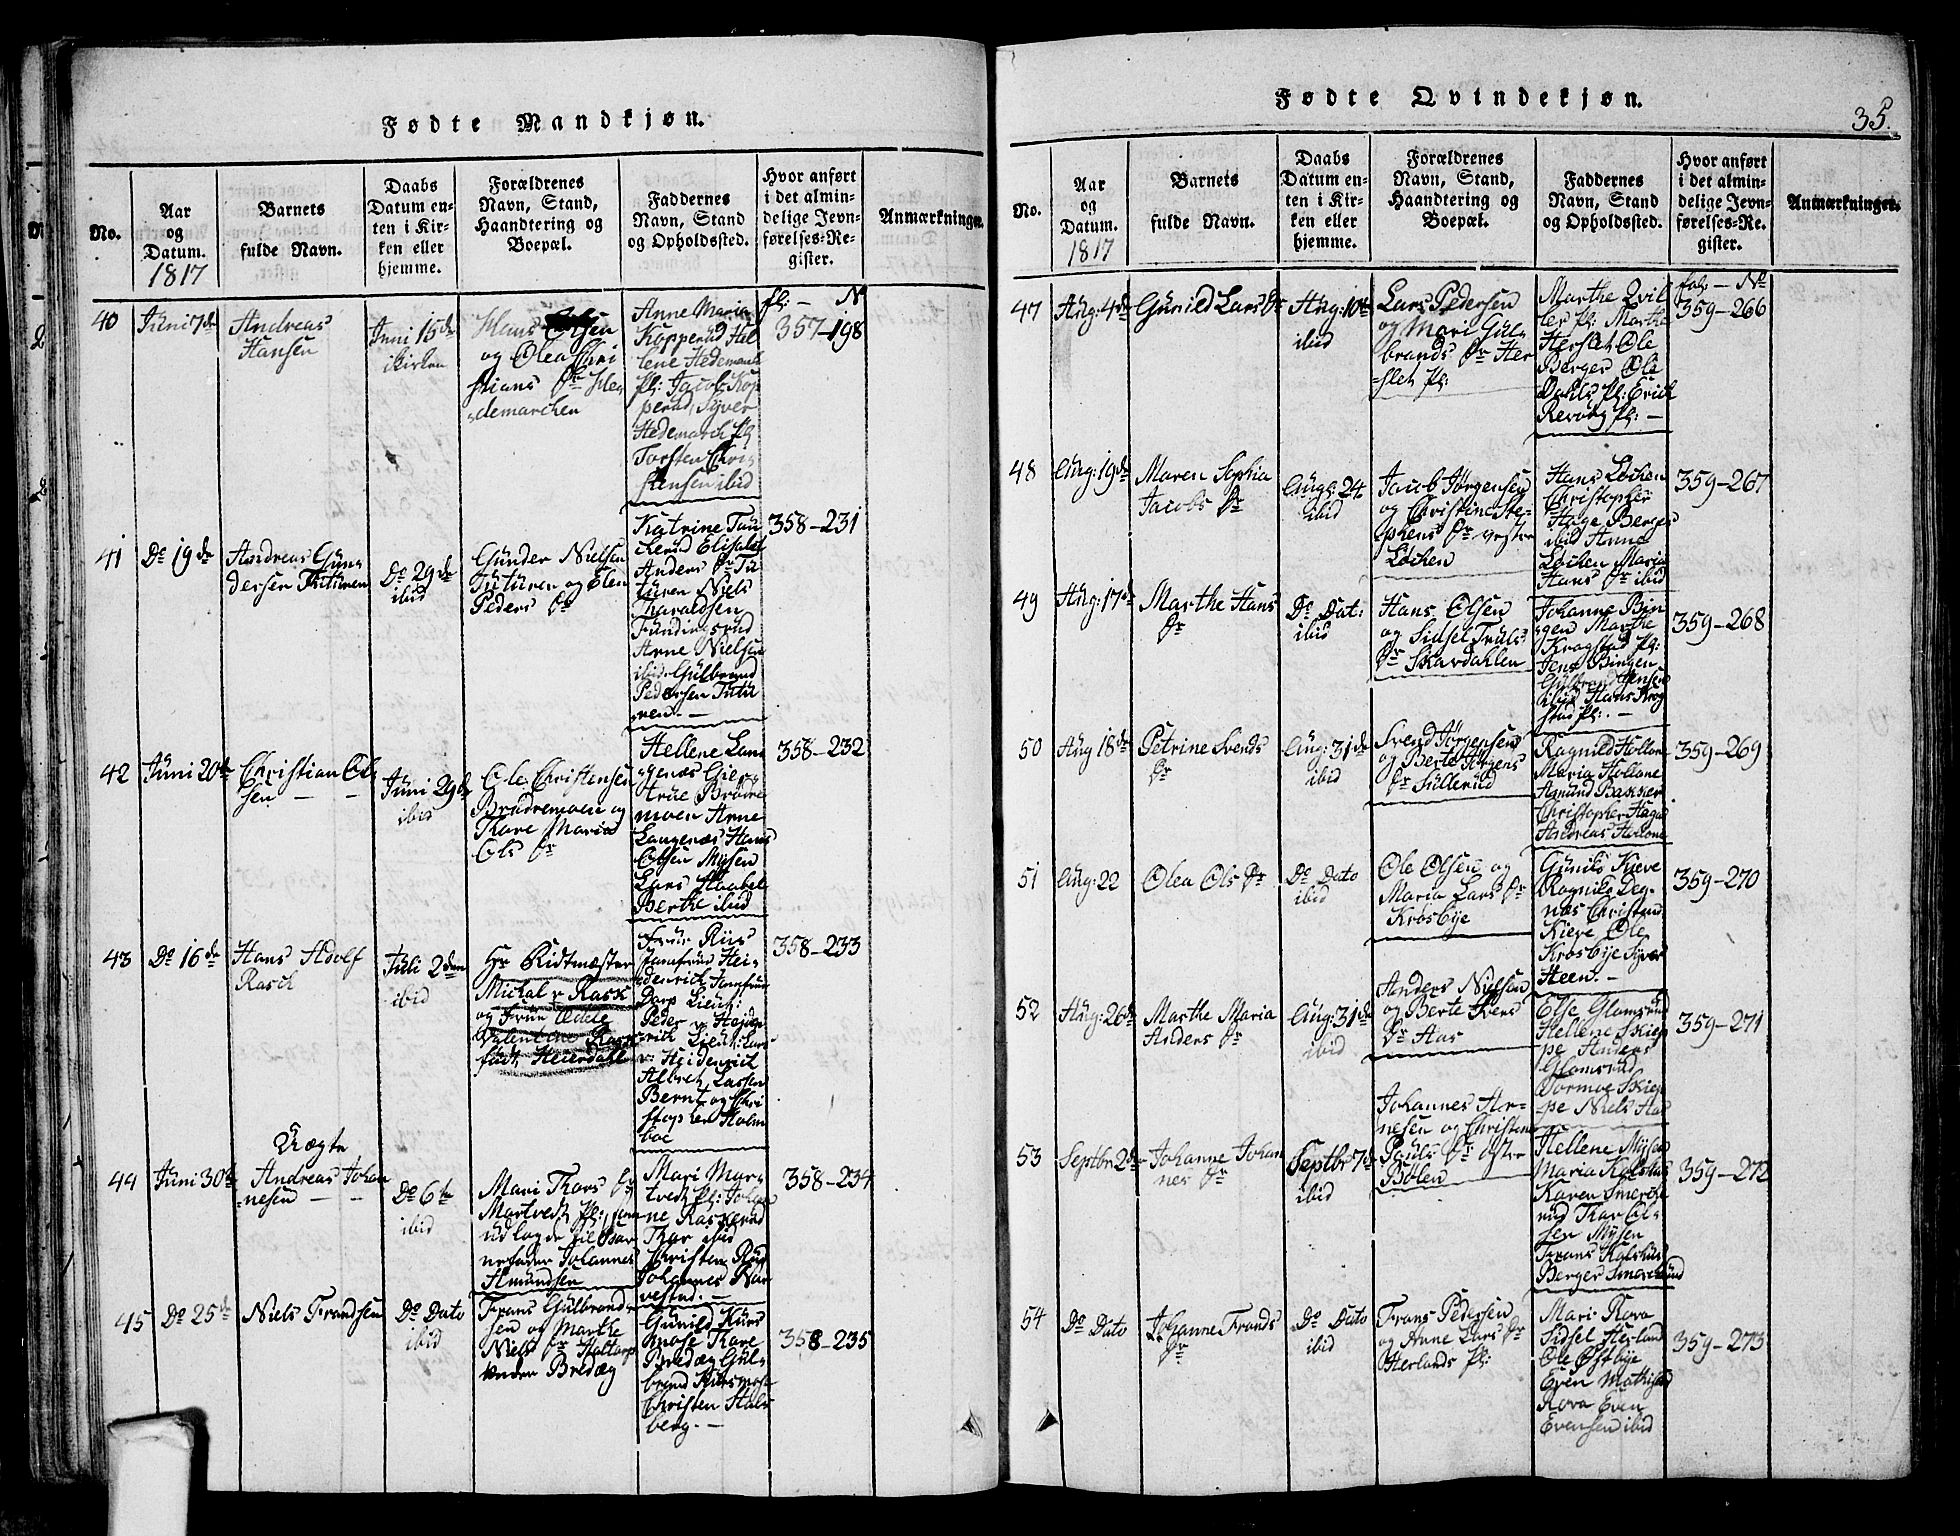 Fødte Mandkjøn.
No.
Aar
og
Datum.
1817
Barnets
fulde Navn.
Daabs
Datum en-
ten i Kir-
ken eller
hjemme.
Forældrenes
Navn, Stand,
Haandtering og
Boepæl.
Faddernes
Navn, Stand
og Opholdssted.
Hvor anført
i det almin-
delige Jevn-
førelses-Re-
gister.
Anmærkninger.
fl: - No
40
Juni 7de
Andreas
Hansen
Juni 15de
i kirken
Hans Olsen
og Olea Chri
stians Dr Hee
demarchen
Anne Maria
Kopperud Hel
lene Hedemark
Pl: Jacob Kop
perud, Syver
Hedemarch Pl
Torsten Chri-
stensen ibid
357-198
41
Do 19de
Andreas Gun
dersen Tuturen
Do 29de
ibid
Gunder Nielsen
Tuturen og Elen
Peders Dr
Katrine Tau
kerud Elisabet
Anders Dr Tu
turen Niels
Haraldsen
Fundingsrud
Arne Nielsen
ibid Gulbrand
Pedersen Tutu
ren. -
358-231
42
Juni 20de
Christian Ol
sen
Juni 29de
ibid
Ole Christensen
Brødremoen og
Kare Maria
Ols Dr
Hellene Lan
genæs Gie
true Brødre
moen Arne
Langenæs Hans
Olsen Mysen
Lars Haabel
Berthe ibid
358-232
43
Do 16de
Hans Adolf
Rasch
Juli 2den
ibid
Hr Ridtmæster
Michal v Rask
og Frue Edele
Valentine Rask
født Heierdahl
Frue Riis
Jomfrue Hei-
denrich Jomfrue
Darp Lieut:
Peder v Heide
rich Lieut: Lars
v: Heidenrich
Albret Lassen
Bernt og Chri
stopher Holm
boe
358-233
44
Juni 30te
Uægte
Andreas Johan
nesen
Do 6te
ibid
Mari Thors Dr
Martvedt Pl:
udlagde til Bar
nefader Johannes
Amundsen
Mari Mar-
tvedt Pl: Johan
ne Raskerud
Thor ibid
Christen Rud
Johannes Nar
vestad. -
358-234
45
Do 25de
Niels Frandsen
Do Dato
ibid
Frans Gulbrand-
sen og Marthe
Niels Dr Haltorp
under Bredæg
Gunild Kurs
mose Kare
Bredæg Gul-
brand Kursmose
Christen Hals
berg. -
358-235
Fødte Qvindekjøn.
35.
No.
Aar
og
Datum.
1817
Barnets
fulde Navn.
Daabs
Datum en-
ten i Kir-
ken eller
hjemme.
Forældrenes
Navn, Stand,
Haandtering og
Boepæl.
Faddernes
Navn, Stand
og Opholdssted.
Hvor anført
i det almin-
delige Jevn-
førelses-Re-
gister.
Anmærkninger.
fol: - No
47
Aug: 4de
Gunild Lars Dr
Aug: 10de
ibid
Lars Pedersen
og Mari Gul-
brands Dr Her
-slet Pl:
Marthe Qvil
ler Pl: Marthe
Herslet Ole
Berger Ole
Dahls Pl: Erich
Revoug Pl: -
359-266
48
Aug: 19de
Maren Sophia
Jacobs Dr
Aug: 24
ibid
Jacob Jørgensen
og Christine Ste-
phens Dr vestre
Løchen
Hans Løchen
Christopher
Hage Berger
ibid Anne
Løchen Maria
Hans Dr ibid
359-267
49
Aug: 17de
Marthe Hans
Dr
Do Dat:
ibid
Hans Olsen
og Sidsel Truls
Dr Skardahlen
Johanne Bin
gen Marthe
Kragstad Pl:
Jens Bingen
Gulbrand Jensen
ibid Hans Krog
stad Pl: -
359-268
50
Aug 18de
Petrine Svends
Dr
Aug: 31de
ibid
Svend Jørgensen
og Berte Jørgens
Dr Sullerud
Ragnild Hollone
Maria Hollone
Amund Bakker
Christopher Haga
Andreas Hollone
359-269
51
Aug: 22
Olea Ols Dr
Do Dato
ibid
Ole Olsen og
Maria Lars Dr
Krosbye
Gunild Kieve
Ragnild Deg-
næs Christen
Kieve Ole
Krosbye Syver
Heen. -
359-270
52
Aug: 26de
Marthe Maria
Anders Dr
Aug: 31de
ibid
Anders Nielsen
og Berte Ivers
Dr Aas
Else Glomsrud
Hellene Skiep
pe Anders
Glomsrud
Tormoe Skiep
pe Niels Aas
359-271
53
Septbr 2de
Johanne Johan
nes Dr
Septbr 7de
ibid
Johannes Hor-
nesen og Christine
Pouls Dr østre
Bølen
Hellene Mysen
Maria Kalshus
Karen Smerke
rud Thor Ol-
sen Mysen
Frans Kalshus
Berger Smerkerud
359-272
54
Do Dato
Johanne Frands
Dr
Do Dato
ibid
Frans Pedersen
og Anne Lars Dr
Herlands Pl:
Mari Rova
Sidsel Herland
Ole Østbye
Even Mathisen
Rova Even
Evensen ibid
359-273